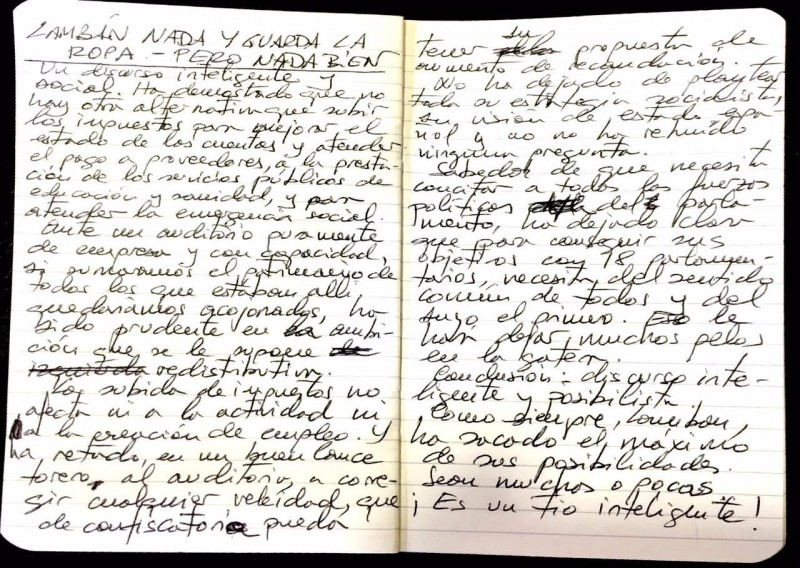 LAMBÁN NADA Y GUARDA LA
ROPA - PERO NADA BIEN
Un discurso inteligente y
social. Ha demostrado que no
hay otra alternativa que subir
los impuestos para mejorar el
estado de las cuentas y atender
el pago a proveedores, a la presta-
ción de los servicios públicos de
educación y sanidad, y para
atender la emergencia social.
Ante un auditorio puramente
de empresa y con capacidad,
si sumáramos el patrimonio de
todos los que estaban allí
quedaríamos acojonados, ha
sido prudente en la ambi-
ción que se le supone de
izquierda redistributiva.
La subida de impuestos no
afecta ni a la actividad ni
a la creación de empleo. Y
ha retado, en un buen lance
torero, al auditorio, a corre-
gir cualquier veleidad, que
de confiscatoria pueda
tener su propuesta de
aumento de recaudación.
No ha dejado de plantear
toda su estrategia socialista,
su visión de estado espa-
ñol y no no ha rehuido
ninguna pregunta.
Sabedor de que necesita
concitar a todas las fuerzas
políticas del parla-
mento, ha dejado claro
que para conseguir sus
objetivos con 18 parlamen-
tarios, necesita del sentido
común de todos y del
suyo el primero. Eso le
hará dejar muchos pelos
en la gatera.
Conclusión: discurso inte-
ligente y posibilista.
Como siempre, Lambán,
ha sacado el máximo
de sus posibilidades.
Sean muchas o pocas
¡Es un tío inteligente!